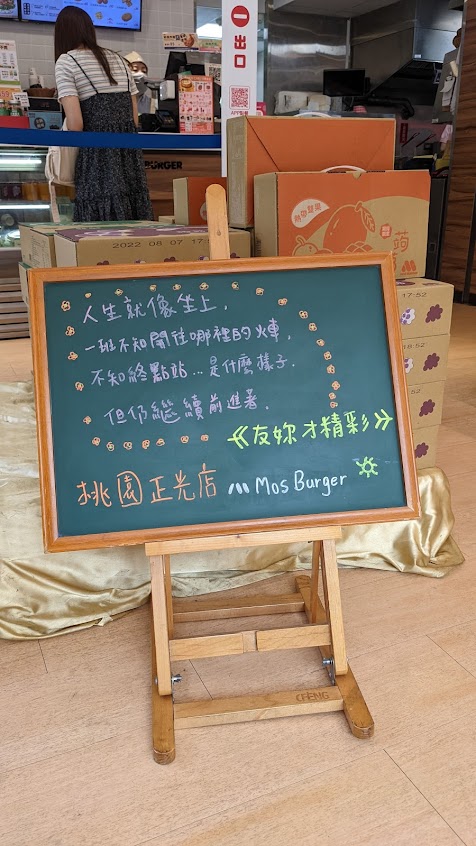 出口
APP點餐
BURGER
熱帶雙果
蒟
2022 08 07 17
17:52
18:52
人生就像坐上,
一班不知開往哪裡的火車,
不知終點站...是什麼樣子.
但仍繼續前進著.
《友妳才精彩》
桃園正光店 Mos Burger
CFENG